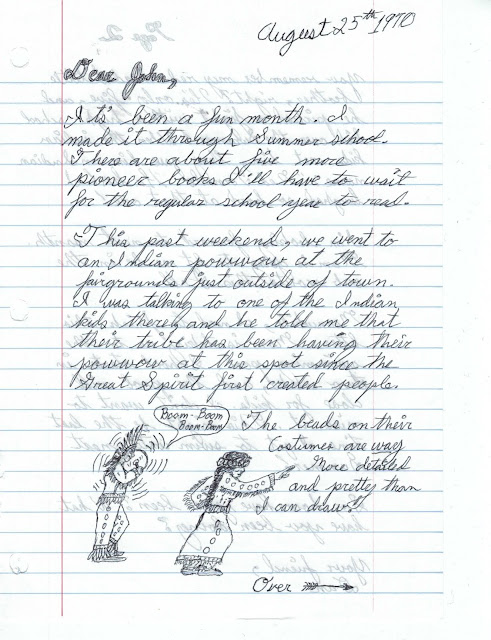 August 25th 1970
Dear John,
It's been a fun month. I
made it through Summer school.
There are about five more
pioneer books I'll have to wait
for the regular school year to read.
This past weekend, we went to
an Indian powwow at the
fairgrounds just outside of town.
I was talking to one of the Indian
kids there, and he told me that
their tribe has been having their
powwow at this spot since the
Great Spirit first created people.
Boom-Boom
Boom-Boom
The beads on their
Costumes are way
More detailed
and pretty than
I can draw!
Over